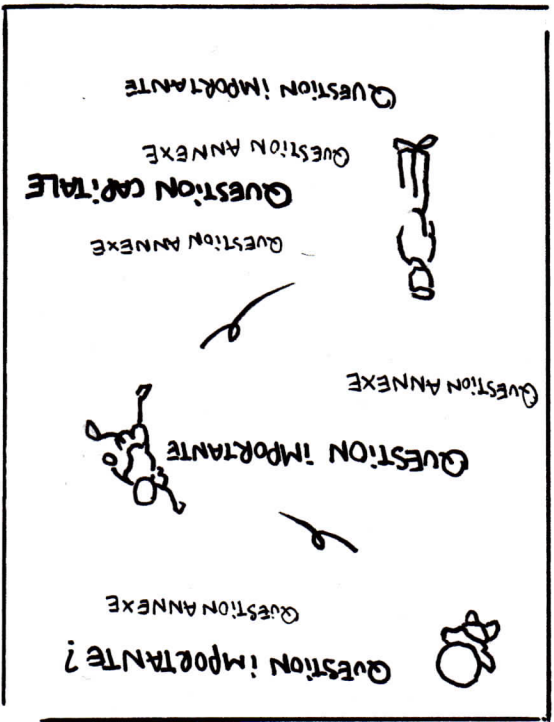 QUESTION IMPORTANTE ?
QUESTION ANNEXE
QUESTION IMPORTANTE
QUESTION ANNEXE
QUESTION ANNEXE
QUESTION CAPITALE
QUESTION ANNEXE
QUESTION IMPORTANTE